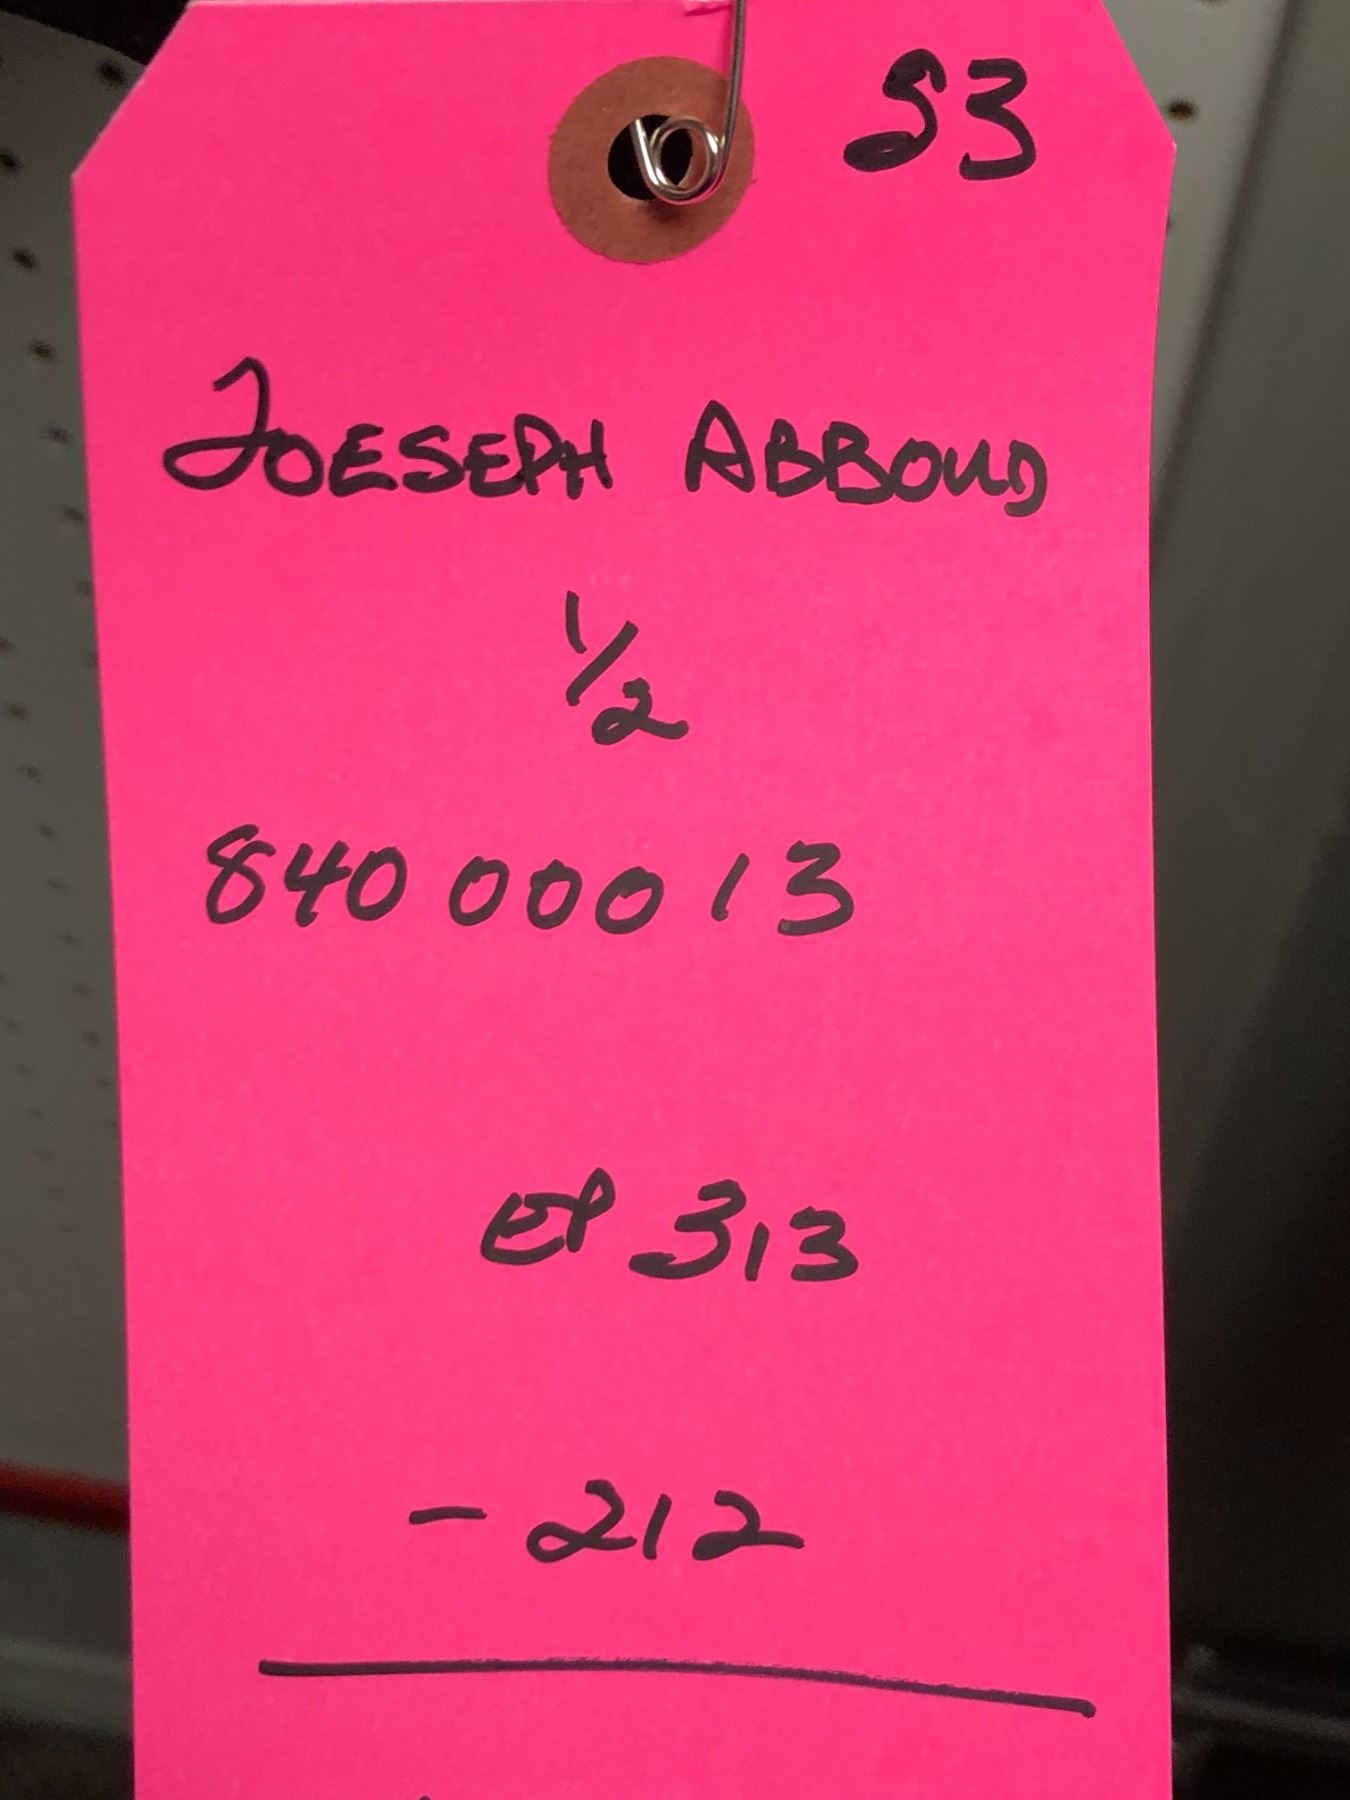 S3
JOESEPH ABBOUD
1/2
840 000 13
EP 313
- 212